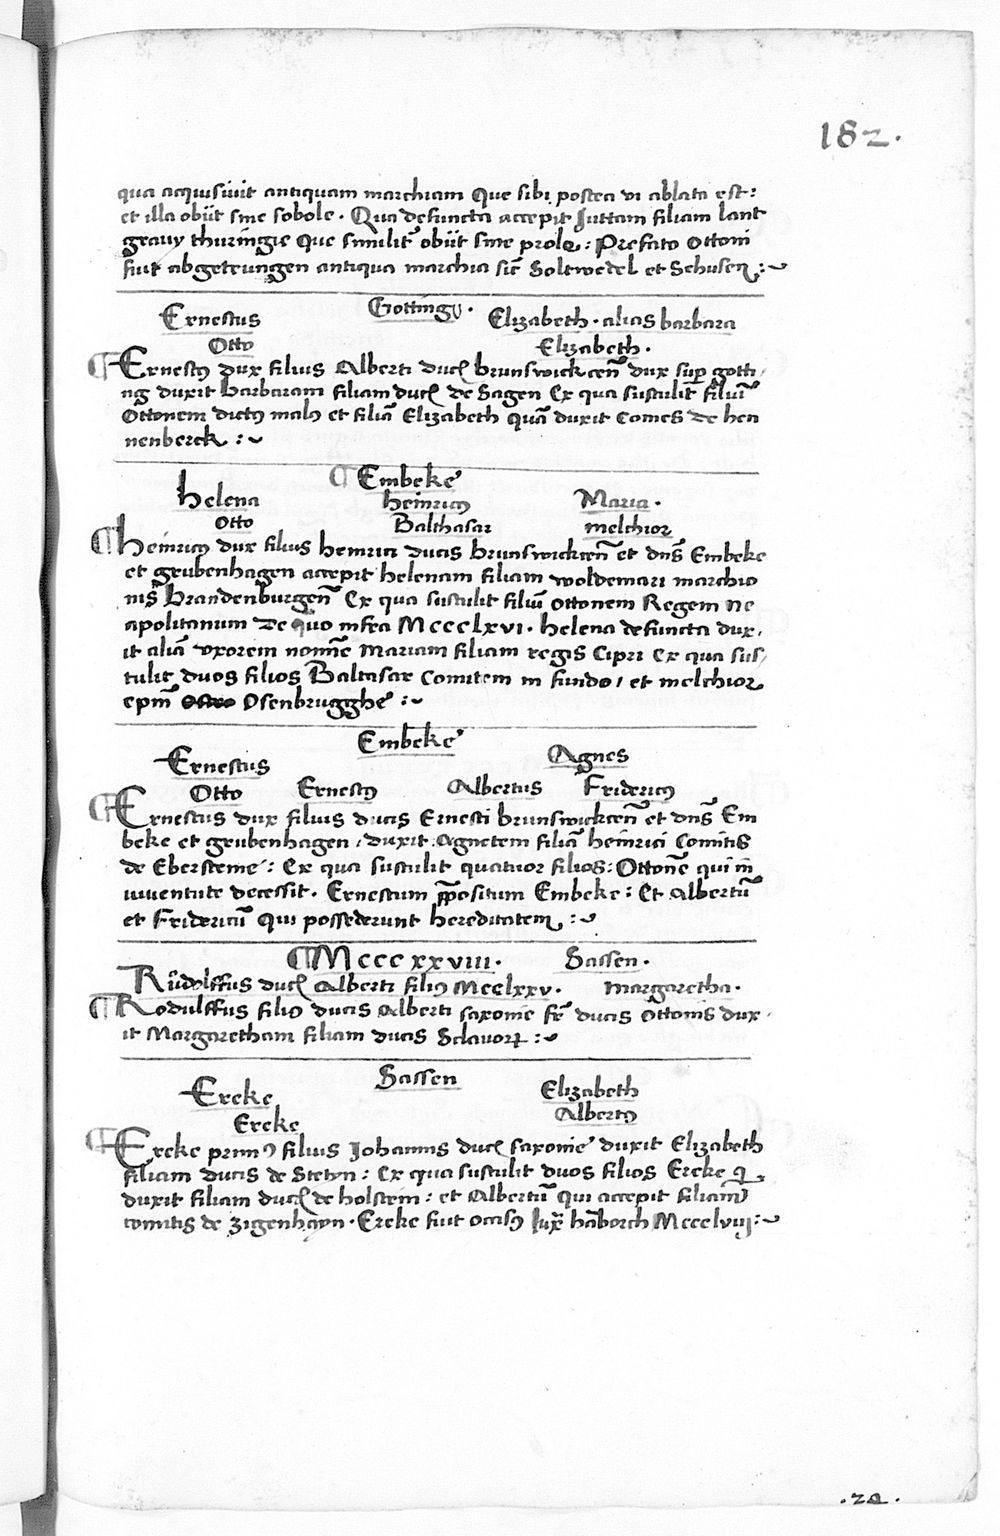 182.
qua acquisiuit antiquam marchiam Que sibi postea vi ablata est:
et illa obiit sine sobole. Qua defuncta accepit Juttam filiam lant
grauy thuringie Que similit' obiit sine prole: Prefato Ottoni
fuit abgetrungen antiqua marchia sic̄ Soltwedel et Sehusen :~
Ernestus Gotting. Elizabeth. alias barbara
Otto Elizabeth.
¶ Ernestꝰ dux filius Alberti ducꝭ brunswickcen̄ dux sup̱ gotti,
ng duxit barbaram filiam ducꝭ de Sagen Ex qua sustulit filiū
Ottonem dictus malꝰ et filiā Elizabeth quā duxit Comes de hen
nenberck :~
¶ Embeke
helena heinricꝰ Maria.
Otto Balthasar melchior
¶ heinricꝰ dux filius heinrici ducis brunswickcen̄ et dn̄s Embeke
et grubenhagen accepit helenam filiam woldemari marchio
nis brandenburgen̄ Ex qua sustulit filiū Ottonem Regem ne
apolitanum De quo infra Mccclxvi. helena defuncta dux,
it aliā vxorem nomīe Mariam filiam regis Cipri Ex qua sus,
tulit duos filios Baltasar Comitem in fundo, et melchior
ep̄m Osenbrugghe :~
Embeke
Ernestus Agnes
Otto Ernestꝰ Albertus Fridericꝰ
¶ Ernestus dux filius ducis Ernesti brunswickcen̄ et dn̄s Em
beke et grubenhagen, duxit Agnetem filiā heinrici Comitis
de Ebersteine: Ex qua sustulit quatuor filios: Ottonē qui in
iuuentute decessit. Ernestum p̄positum Embeke: Et Albertū
et Fridericū Qui possederunt hereditatem :~
¶ Mcccxxviii. Sassen.
Růdolffus ducꝭ Alberti filiꝰ Mcclxxv. Margaretha.
¶ Rodulffus filiꝰ ducis Alberti saxonie fr̄ ducis Ottonis dux,
it Margaretham filiam ducis Sclauoꝝ :~
Sassen
Ercke Elizabeth
Ercke Albertꝰ
¶ Ercke primꝰ filius Johannis ducꝭ saxonie duxit Elizabeth
filiam ducis de Stetyn: Ex qua sustulit duos filios Ercke q̇
duxit filiam ducꝭ de holstein: et Albertū qui accepit filiam
comitis de zigenhayn. Ercke fuit occisꝰ Jux̄ hāborch Mccclvij:~